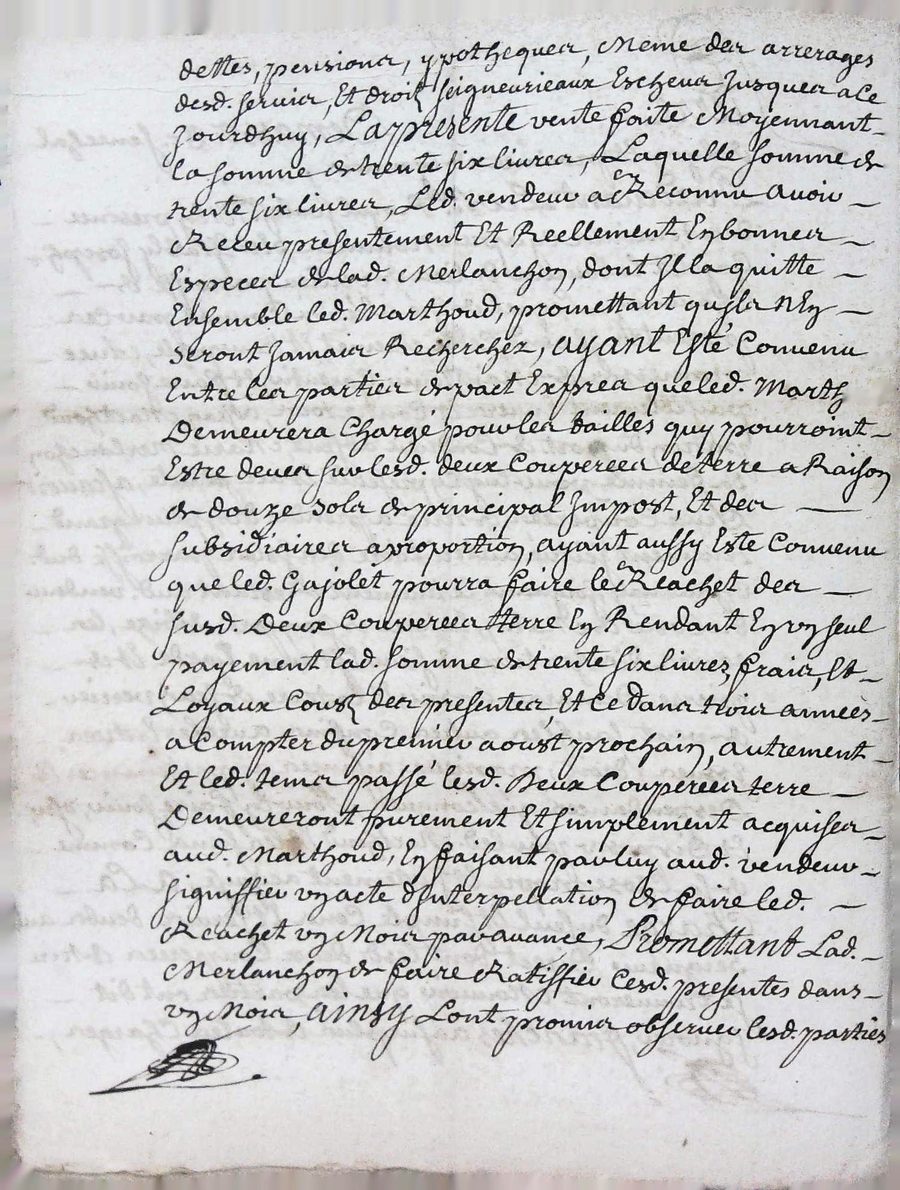 dettes, pensions, ypotheques, Meme des arrerages
desd. servis, Et droits seigneurieaux Escheus Jusques a Ce
Jourdhuy, La presente vente faite Moyennant
la somme de trente six livres, Laquelle somme de
trente six livres, Led. vendeur a Reconnu avoir
Receu presentement Et Reellement En bonnes
Especes de lad. Merlanchon, dont Il la quitte
Ensemble led. Marthoud, promettant quils nEn
seront Jamais Recherchez, ayant Esté Convenu
Entre les parties de pact Expres que led. Marth
Demeurera Chargé pour les tailles quy pourroint
Estre deues sur lesd. deux Couperees de terre a Raison
de douze sols de principal Impost, Et des
subsidiaires a proportion, ayant aussy Esté Convenu
que led. Gajolet pourra faire le Reachet des
susd. Deux Couperees terre En Rendant En un seul
payement lad. somme de trente six livres, frais, Et
Loyaux Cousts des presentes, Et Ce dans trois années
a Compter du premier aoust prochain, autrement
Et led. tems passé lesd. Deux Couperees terre
Demeureront purement Et simplement acquises
aud. Marthoud, En faisant par luy aud. vendeur
signiffier un acte dInterpellation de faire led.
Reachet un Mois par avance, Promettant Lad.
Merlanchon de faire Ratiffier Cesd. presentes dans
un Mois, ainsy Lont promis observer lesd. parties